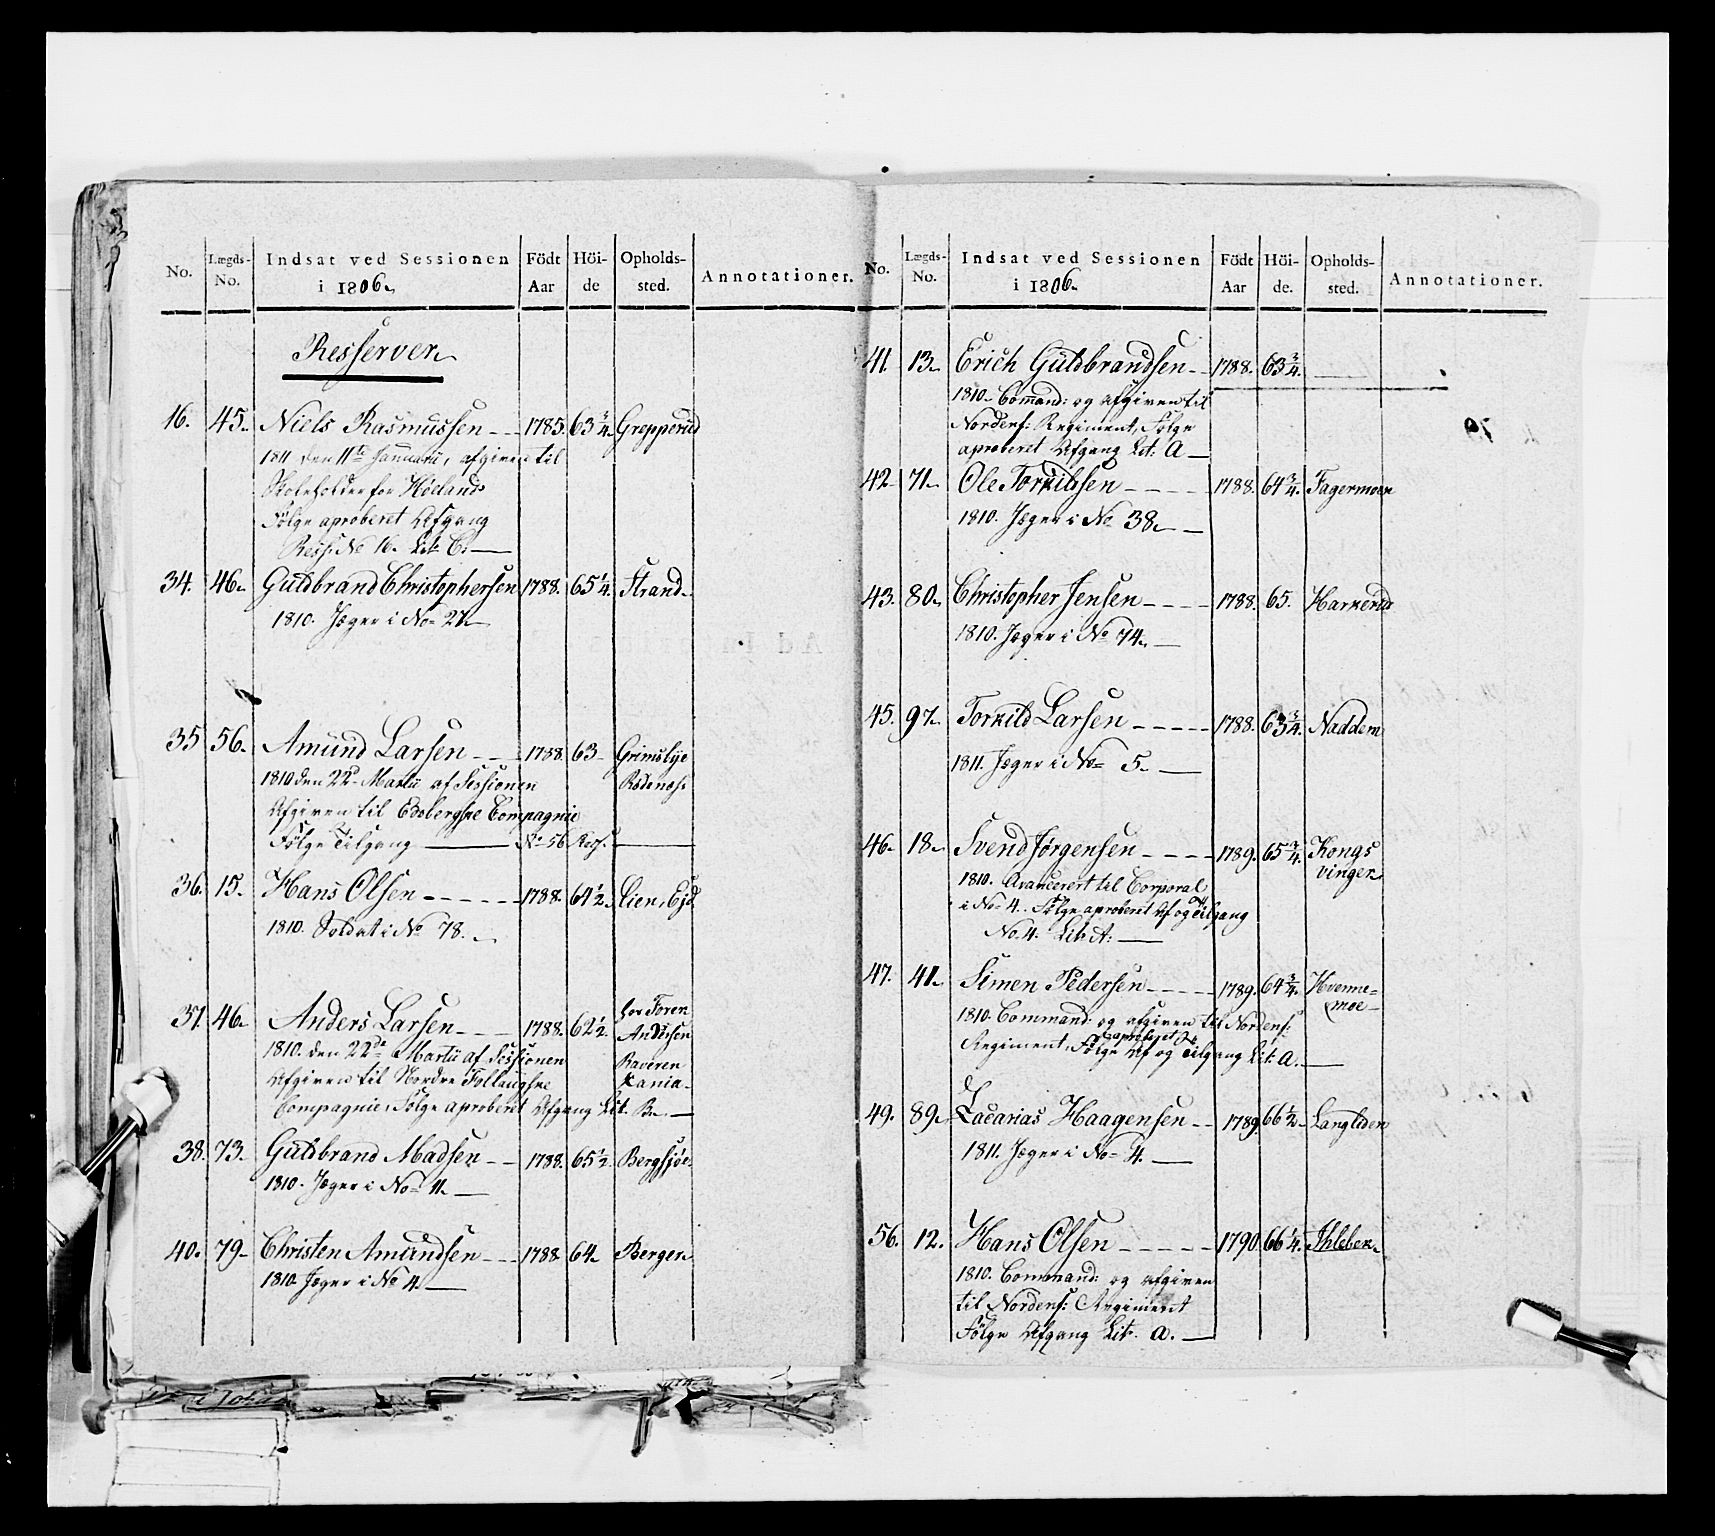 No. Lægds-No. Indsat ved Sessionen i 1806. Födt Aar Höi-de Opholds-sted. Annotationer.
Resserver
16. 45. Niels Rasmussen 1785. 63 3/4. Grepperud
1811 den 11te Januarii, afgiven til
Skoleholder for Høeland
Følge aproberet Afgang
Ress: No 16. Lit: C.
34. 46. Guldbrand Christophersen 1788. 65 1/4. Strand
1810. Jæger i No 27.
35 56. Amund Larsen 1788. 63 Grimslije
1810 den 22de Martii af Sessionen Rødenæs:
Afgiven til Edsbergske Compagnie
Følge Tilgang No 56 Ress.
36. 15. Hans Olsen 1788. 64 1/2. Lien, Ejd
1810. Soldat i No 78.
37 46. Anders Larsen 1788. 62 1/2. hos Foren
Andersen
1810. den 22de Martii af Sessionen
Afgiven til Nordre Follaugske
Compagnie, Følge aproberet Afgang Lit. B.
38. 73. Guldbrand Madsen 1788. 65 1/2. Bergsjøe
1810. Jæger i No 11.
40. 79. Christen Amundsen 1788. 64. Berger
1810. Jæger i No 4.
No. Lægds-No. Indsat ved Sessionen i 1806. Födt Aar Höi-de. Opholds-sted. Annotationer.
41. 13. Erich Guldbrandsen 1788. 63 3/4.
1810. Command: og afgiven til
Nordenf: Regiment, Følge
aproberet Afgang Lit: A
42. 71. Ole Torkildsen 1788. 64 3/4. Fagermoen
1810. Jæger i No 38.
43. 80. Christopher Jensen 1788. 65. Harkerud
1810. Jæger i No 74.
45. 97. Torkild Larsen 1788. 63 3/4. Naddem
1811. Jæger i No 5.
46. 18. Svend Jørgensen 1789. 65 3/4. Kongs
vinger
1810. Avancerert til Corporal
i No 4. Følge aproberet Af og Tilgang
No. 4. Lit A:
47. 41. Simen Pedersen 1789. 64 3/4. Hvenne-
moe
1810. Command: og afgiven til Nordenf:
Regiment, Følge aproberet Af og Tilgang Lit: A.
49. 89. Zacarias Haagensen 1789. 66 1/2. Langliden
1811. Jæger i No 4.
56. 12. Hans Olsen 1790 66 1/4. Ihlebek
1810. Command: og afgiven
til Nordenf: Regiment
Følge Afgang Lit. a.